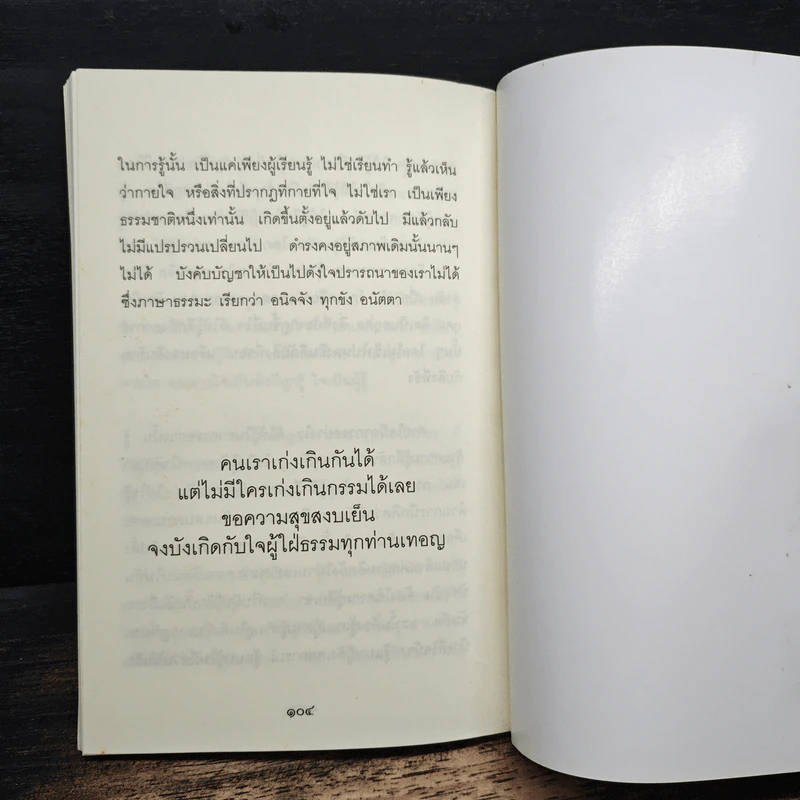 ในการรู้นั้น เป็นแค่เพียงผู้เรียนรู้ ไม่ใช่เรียนทำ รู้แล้วเห็น
ว่ากายใจ หรือสิ่งที่ปรากฏที่กายที่ใจ ไม่ใช่เรา เป็นเพียง
ธรรมชาติหนึ่งเท่านั้น เกิดขึ้นตั้งอยู่แล้วดับไป มีแล้วกลับ
ไม่มีแปรปรวนเปลี่ยนไป ดำรงคงอยู่สภาพเดิมนั้นนานๆ
ไม่ได้ บังคับบัญชาให้เป็นไปดังใจปรารถนาของเราไม่ได้
ซึ่งภาษาธรรมะ เรียกว่า อนิจจัง ทุกขัง อนัตตา
คนเราเก่งเกินกันได้
แต่ไม่มีใครเก่งเกินกรรมได้เลย
ขอความสุขสงบเย็น
จงบังเกิดกับใจผู้ใฝ่ธรรมทุกท่านเทอญ
๑๐๔